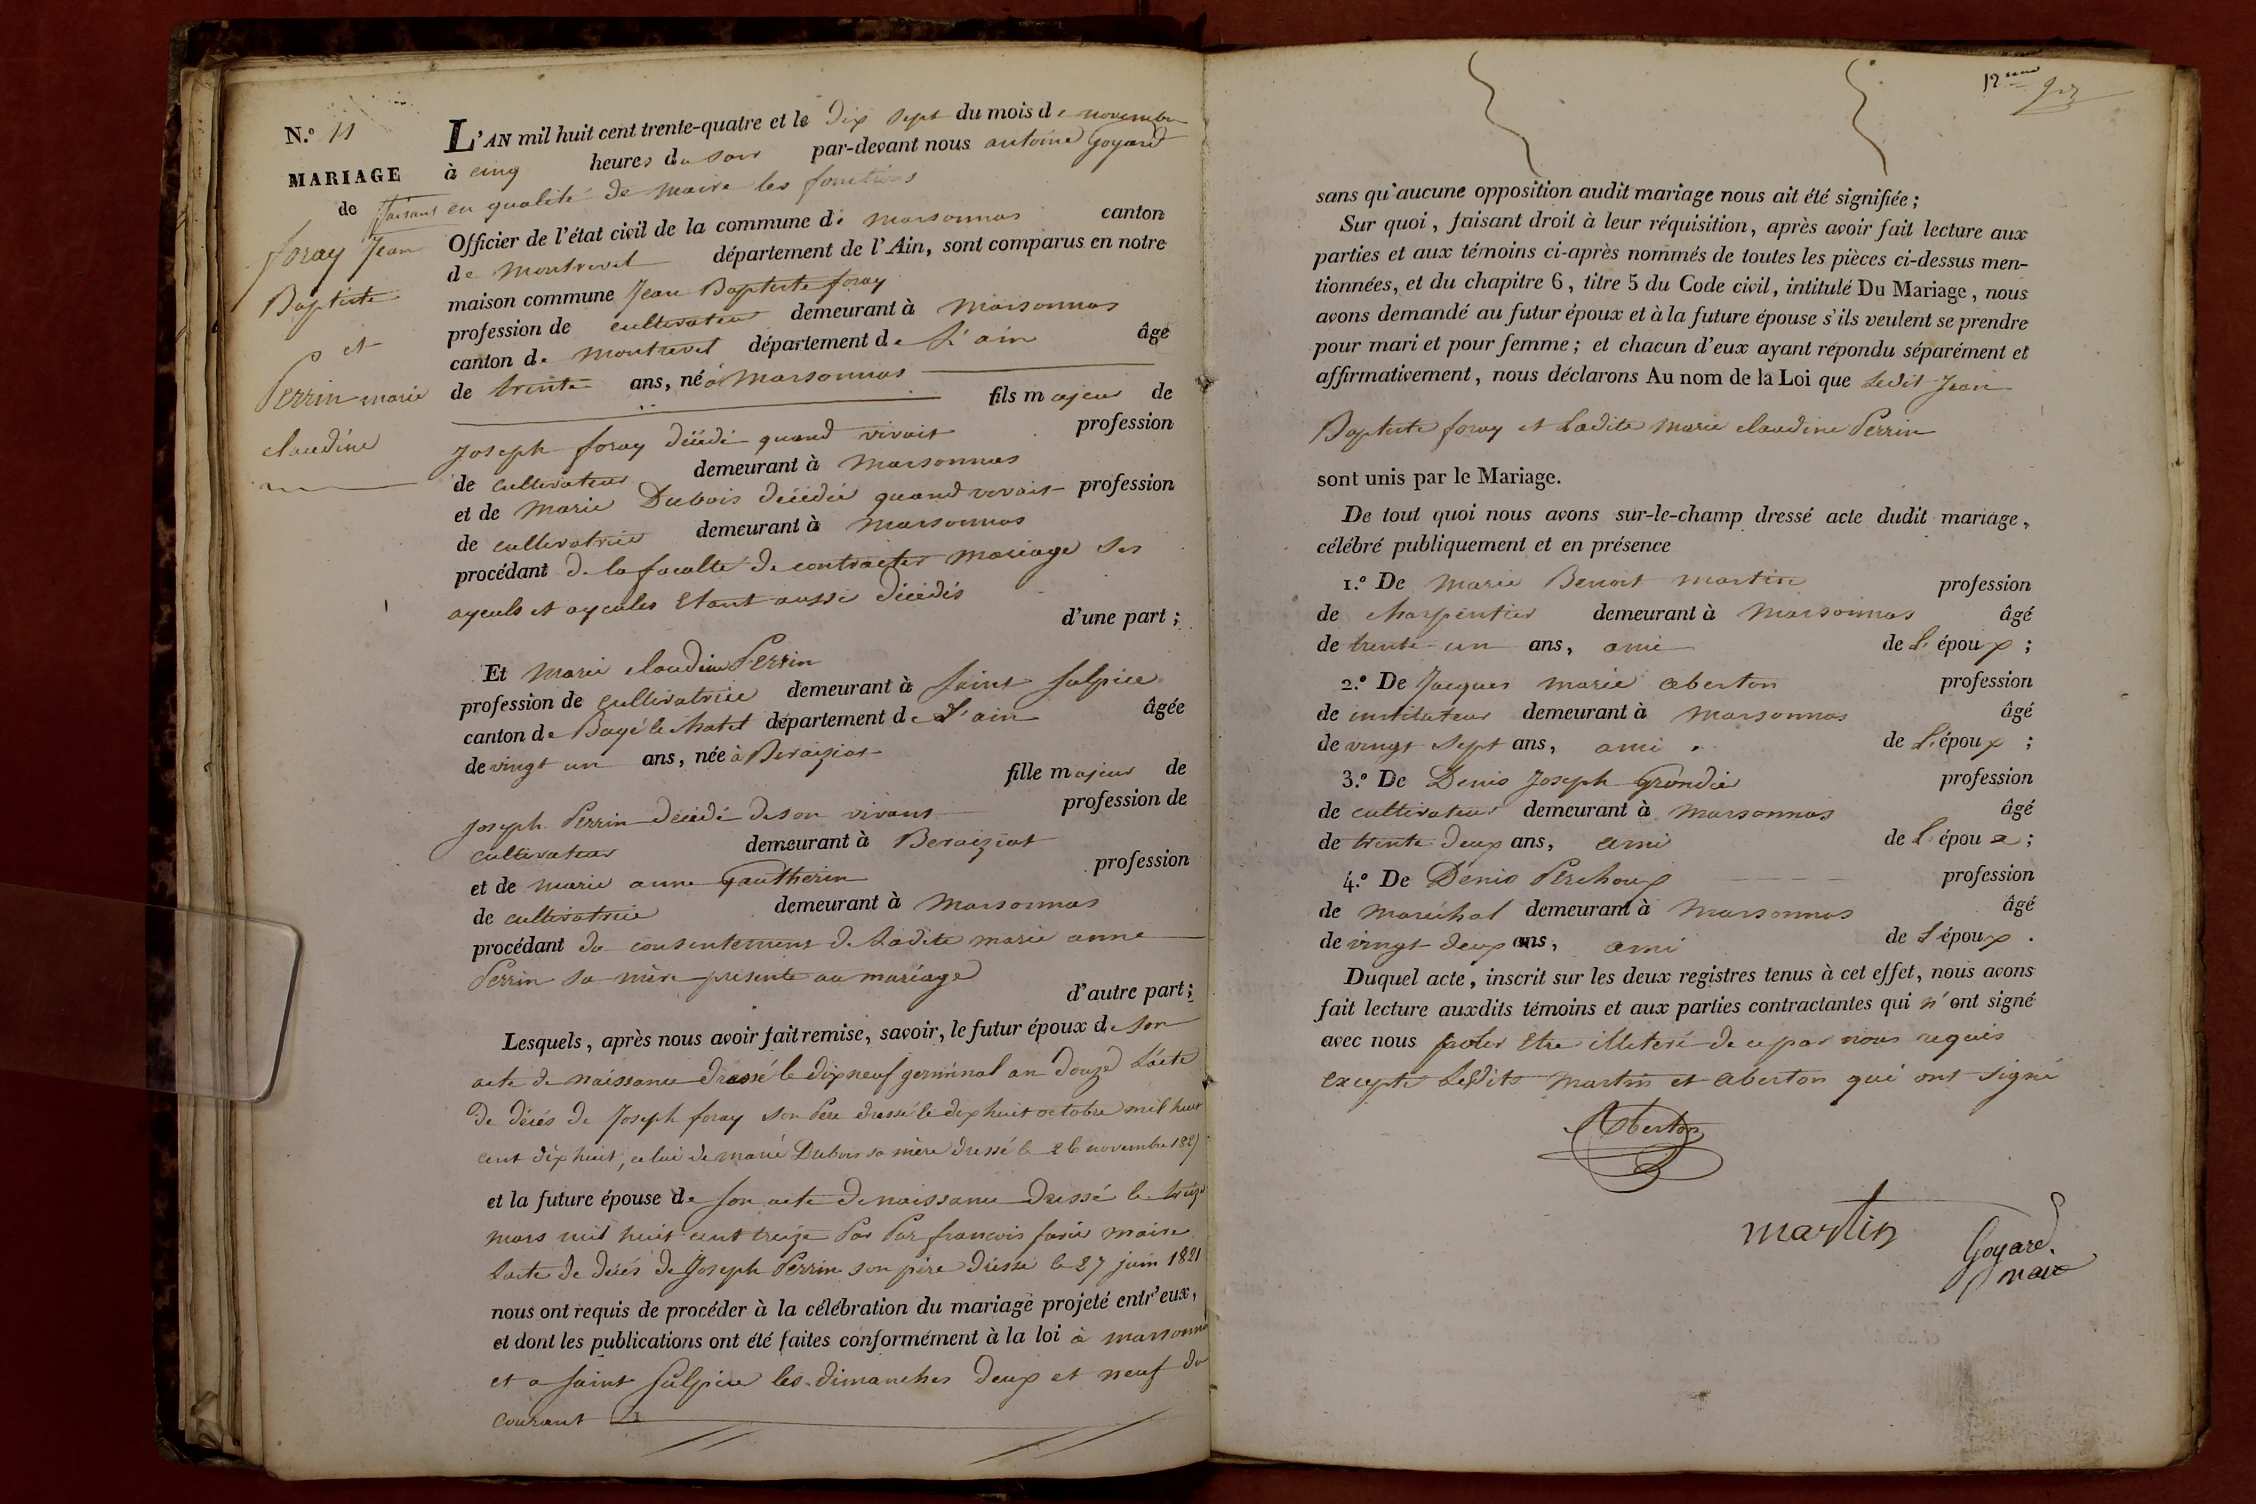 N.o 11
MARIAGE
de
foray Jean
Baptiste
et
Perrin marie
claudine
L'AN mil huit cent trente-quatre et le dix sept du mois de novembre
à cinq heures du soir par-devant nous antoine Goyard
faisant en qualité de maire les fonctions
Officier de l'état civil de la commune de marsonnas canton
de montrevel département de l'Ain, sont comparus en notre
maison commune Jean Baptiste foray
profession de cultivateur demeurant à marsonnas
canton de montrevel département de L'ain âgé
de trente ans, né à marsonnas
fils majeur de
joseph foray décédé quand vivait profession
de cultivateur demeurant à marsonnas
et de marie Dubois décédée quand vivait profession
de cultivatrice demeurant à marsonnas
procédant de la faculté de contracter mariage ses
ayeuls et ayeules Etant aussi décédés
d'une part ;
Et marie claudine Perrin
profession de cultivatrice demeurant à saint sulpice
canton de Bagé le chatel département de L'ain âgée
de vingt un ans, née à Beraiziat
fille majeur de
joseph Perrin décédé de son vivant profession de
cultivateur demeurant à Beraiziat
et de marie anne Gautherin profession
de cultivatrice demeurant à marsonnas
procédant du consentement de Ladite marie anne
Perrin sa mère presente au mariage
d'autre part ;
Lesquels, après nous avoir fait remise, savoir, le futur époux de son
acte de naissance dressé le dix neuf germinal an douze L'acte
de décés de Joseph foray son Pere dressé le dix huit octobre mil huit
cent dix huit, celui de marie Dubois sa mère dressé le 26 novembre
et la future épouse de son acte de naissance dressé le treize
mars mil huit cent treize Par Par francois maire
L'acte de décés de Joseph Perrin son père dressé le 27 juin 1821
nous ont requis de procéder à la célébration du mariage projeté entr'eux,
et dont les publications ont été faites conformément à la loi à marsonnas
et a saint sulpice les dimanches deux et neuf du
courant
12
sans qu'aucune opposition audit mariage nous ait été signifiée ;
Sur quoi, faisant droit à leur réquisition, après avoir fait lecture aux
parties et aux témoins ci-après nommés de toutes les pièces ci-dessus men-
tionnées, et du chapitre 6, titre 5 du Code civil, intitulé Du Mariage, nous
avons demandé au futur époux et à la future épouse s'ils veulent se prendre
pour mari et pour femme ; et chacun d'eux ayant répondu séparément et
affirmativement, nous déclarons Au nom de la Loi que Ledit Jean
Baptiste foray et Ladite marie claudine Perrin
sont unis par le Mariage.
De tout quoi nous avons sur-le-champ dressé acte dudit mariage,
célébré publiquement et en présence
1.o De Marie Benoit martin profession
de charpentier demeurant à marsonnas âgé
de trente un ans, ami de L'époux ;
2.o De Jacques marie aberton profession
de instituteur demeurant à marsonnas âgé
de vingt sept ans, ami de L'époux ;
3.o De Denis Joseph Grondie profession
de cultivateur demeurant à marsonnas âgé
de trente deux ans, ami de L'épou ;
4.o De Denis Perchoux profession
de maréchal demeurant à marsonnas âgé
de vingt deux ans, ami de L'époux .
Duquel acte, inscrit sur les deux registres tenus à cet effet, nous avons
fait lecture auxdits témoins et aux parties contractantes qui n'ont signé
avec nous Etre illeteré de ce par nous requis
excepté Lesdits martin et aberton qui ont signé
Aberton
martin
Goyard